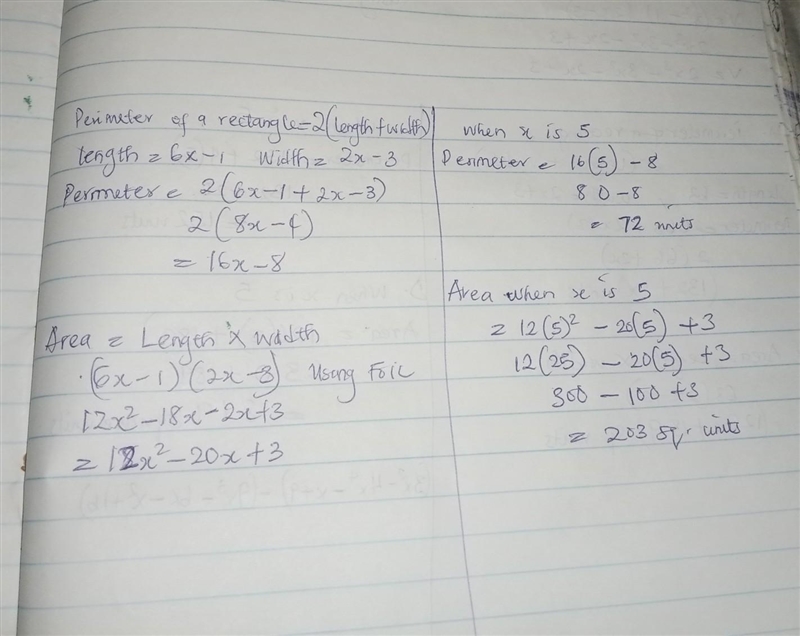 Perimeter of a rectangle = 2(length + width)
length = 6x-1 Width = 2x-3
Perimeter = 2(6x-1 + 2x-3)
2(8x-4)
= 16x-8
Area = Length x width
(6x-1)(2x-3) Using FOIL
12x²-18x-2x+3
= 12x²-20x+3
when x is 5
Perimeter = 16(5) - 8
80-8
= 72 units
Area when x is 5
= 12(5)² - 20(5) +3
12(25) - 20(5) +3
300 - 100 +3
= 203 sq. units